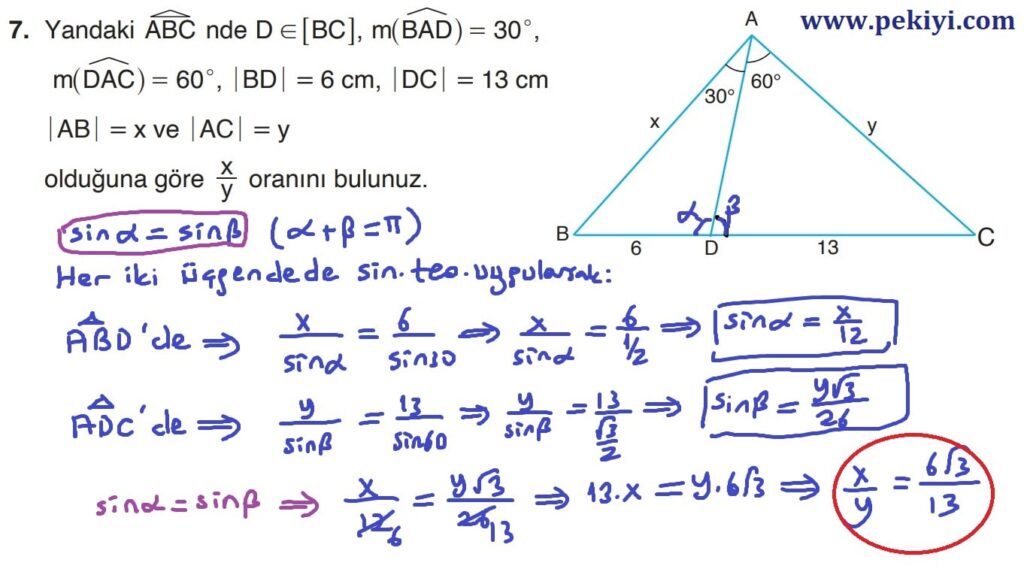 www.pekiyi.com
7. Yandaki ABC nde D ∈ [BC], m(BAD) = 30°,
m(DAC) = 60°, |BD| = 6 cm, |DC| = 13 cm
|AB| = x ve |AC| = y
olduğuna göre x/y oranını bulunuz.
A
30° 60°
x y
α β
B 6 D 13 C
sinα = sinβ (α + β = π)
Her iki üçgendede sin. teo. uygularsak:
ABD'de ⇒ x/sinα = 6/sin30 ⇒ x/sinα = 6/(1/2) ⇒ sinα = x/12
ADC'de ⇒ y/sinβ = 13/sin60 ⇒ y/sinβ = 13/(√3/2) ⇒ sinβ = y√3/26
sinα = sinβ ⇒ x/12 6 = y√3/26 13 ⇒ 13.x = y.6√3 ⇒ x/y = 6√3/13